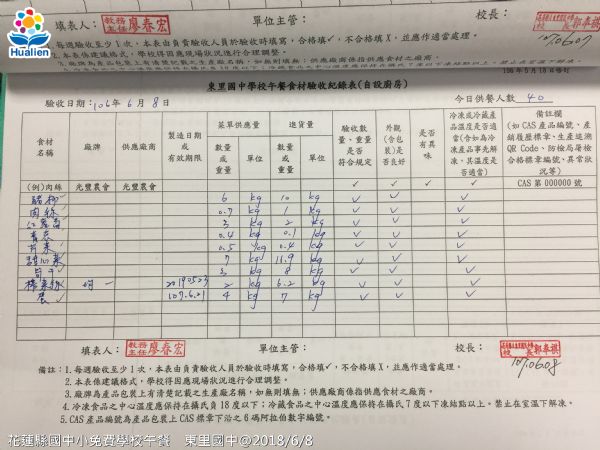 Hualien
填表人：
教務主任 廖春宏
單位主管：
校長：
1.每週驗收至少1次，本表由負責驗收人員於驗收時填寫，合格填✓，不合格填X，並應作適當處理。
2.本表係建議格式，學校得因應現場狀況進行合理調整。
106年5月18日修訂
東里國中學校午餐食材驗收紀錄表(自設廚房)
驗收日期：106年6月8日
今日供餐人數 40
食材名稱 廠牌 供應廠商 製造日期或有效期限 菜單供應量 進貨量 驗收數量、重量是否符合規定 外觀(含包裝)是否良好 是否有異味 冷凍或冷藏產品溫度是否適當(含如為冷凍產品事先解凍，其溫度是否適當) 備註欄(如CAS產品編號、產銷履歷標章、生生追溯QR Code、防檢局屠檢合格標章編號、異常狀況等)
數量或重量 單位 數量或重量 單位
(例)肉絲 光豐農會 光豐農會 ✓ ✓ ✓ ✓ CAS 第 000000 號
6 kg 10 kg ✓ ✓ ✓
肉絲 0.7 kg 1 kg ✓ ✓ ✓
3 kg 2 kg ✓ ✓ ✓
0.4 kg 0.1 kg ✓ ✓ ✓
0.5 kg 0.4 kg ✓ ✓ ✓
7 kg 11.9 kg ✓ ✓ ✓
3 kg 8 kg ✓ ✓ ✓
榨菜絲 均一 20190523 2 kg 6.2 kg ✓ ✓ ✓
107.6.21 4 kg 7 kg ✓ ✓ ✓
填表人：
教務主任 廖春宏
單位主管：
校長：
1070608
備註：1.每週驗收至少1次，本表由負責驗收人員於驗收時填寫，合格填✓，不合格填X，並應作適當處理。
2.本表係建議格式，學校得因應現場狀況進行合理調整。
3.廠牌為產品包裝上有清楚記載之生產廠名稱，如無則填無；供應廠商係指供應食材之廠商。
4.冷凍食品之中心溫度應保持在攝氏負18度以下；冷藏食品之中心溫度應保持在攝氏7度以下凍結點以上。禁止在室溫下解凍。
5.CAS產品編號為產品包裝上CAS標章下沿之6碼阿拉伯數字編號。
花蓮縣國中小免費學校午餐 東里國中@2018/6/8